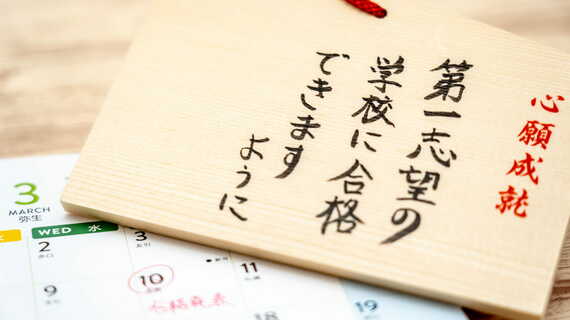 心願成就
第一志望の
学校に合格
できます
ように
3
MARCH
弥生
WED 水
2
赤口
3
友引
9
10
11
合格発表
18
19